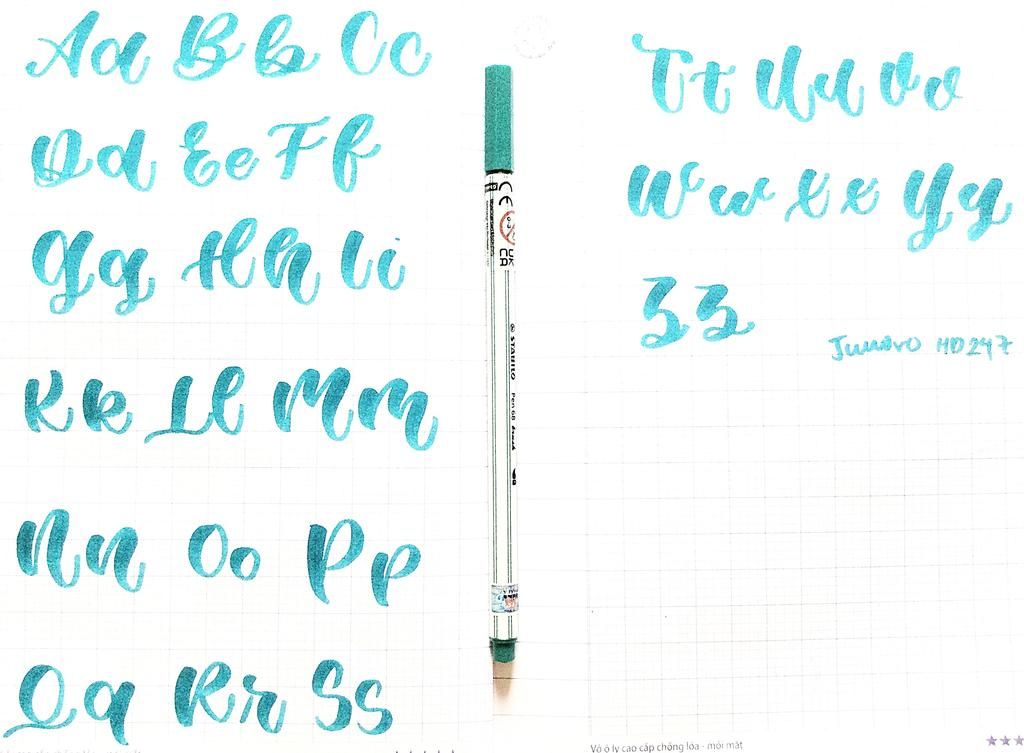 Aa Bb Cc
Dd Ee Ff
Gg Hh Ii
Kk Ll Mm
Nn Oo Pp
Qq Rr Ss
CE
UK
CA
STABILO Pen 68 brush
Tt Uu Vv
Ww Xx Yy
Zz
Junaro HD247
Vở ô ly cao cấp chống lóa - mỏi mắt